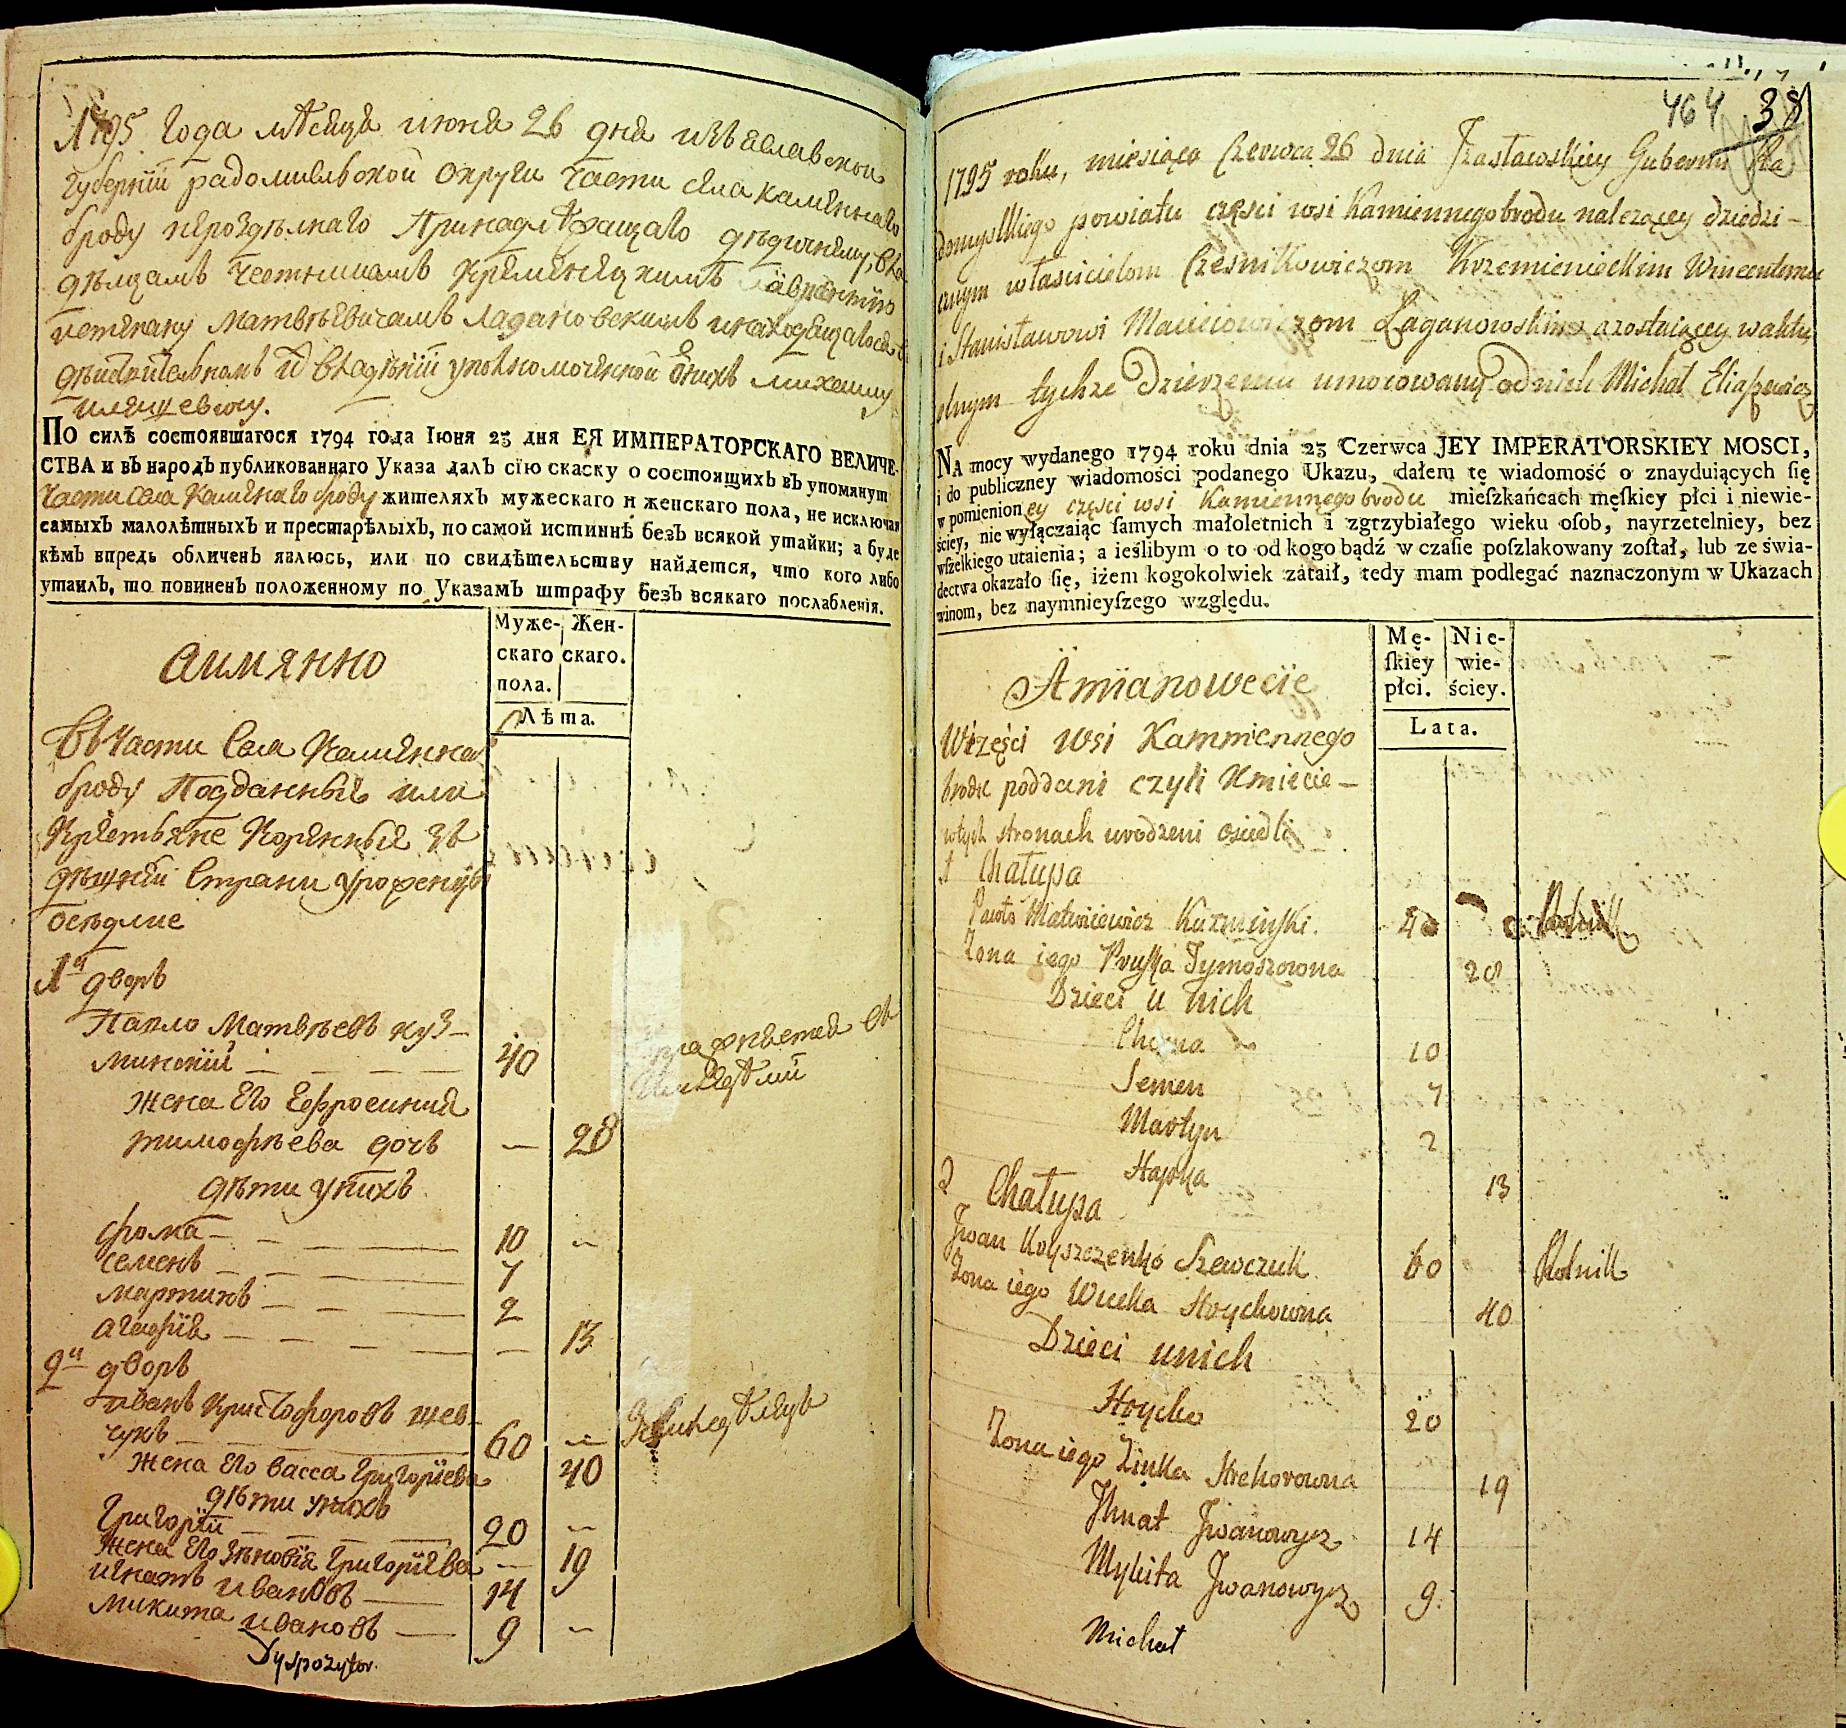 1795 года мѣсяца июня 26 дня изъяславской
губернїи радомысльской округи части села каменнаго
броду нероздѣлнаго принадлѣжащаго дѣдичнему, вла
дѣлцамъ чесникамъ кремѣнецкимъ
матвѣевичамъ
дѣйствительномъ владѣнїи уполномоченной от нихъ михаилу
иляшевичу.
По силѣ состоявшагося 1794 года Іюня 23 дня ЕЯ ИМПЕРАТОРСКАГО ВЕЛИЧЕ-
СТВА и въ народъ публикованнаго Указа далъ сїю скаску о состоящихъ въ упомянут
части села Каменаго броду жителяхъ мужескаго и женскаго пола, не исключая
самыхъ малолѣтныхъ и престарѣлыхъ, по самой истиннѣ безъ всякой утайки; а буде
кѣмъ впредь обличенъ явлюсь, или по свидѣтельству найдется, что кого либо
утаилъ, то повиненъ положенному по Указамъ штрафу безъ всякаго послабленїя.
Муже- Жен-
скаго скаго.
пола.
Лѣта.
аимянно
Въ Части Села Каменна
броду Подданныѣ или
Крестьяне Коренныя зъ
дѣшнѣй Страни урожени
осѣдлие
1й дворъ
Павло Матвѣевъ куз-
минский 40
жена Его Ефросиния
тимофѣева дочь — 28
дѣти у нихъ
фома 10 —
семенъ 7
мартинъ 2
агафїя — 13
2й дворъ
иванъ Христофоровъ шев-
чукъ 60 —
жена Его васса Григорїева 40
дѣти у нихъ
Григорїй 20 —
жена Его зѣновїя Григорїева — 19
игнатъ ивановъ 14
микита ивановъ 9 —
Dyspozytor.
464 38
1795 roku, miesiąca Czerwca 26 dnia Izasławskiey Gubernii Ra
domyslskiego powiatu części wsi Kamiennegobrodu nalezącey dziedzi-
cznym włascicielom Czesnikowiczom Krzemienieckim Wincentemu
i Stanisławowi Maciciowiczom Łaganowskim a zostaiącey w aktu
alnym tychze Dzierzeniu umocowany od nich Michał Eliaszewicz
NA mocy wydanego 1794 roku dnia 23 Czerwca JEY IMPERATORSKIEY MOSCI,
i do publiczney wiadomości podanego Ukazu, dałem tę wiadomość o znayduiących się
w pomienioney części wsi Kamiennęgobrodu mieſzkańcach męſkiey płci i niewie-
ściey, nie wyłączaiąc ſamych małoletnich i zgrzybiałego wieku oſob, nayrzetelniey, bez
wſzelkiego utaienia; a ieślibym o to od kogo bądź w czaſie poſzlakowany zoſtał, lub ze świa-
dectwa okazało ſię, iżem kogokolwiek zataił, tedy mam podlegać naznaczonym w Ukazach
winom, bez naymnieyſzego względu.
Mę- Nie-
ſkiey wie-
płci. ściey.
Lata.
Amianowecie
W Części Wsi Kammiennego
brodu poddani czyli Kmiecie—
w tych stronach urodzeni osiedli
1 Chałupa
Pawło Matwiiewicz Kuzminski. 40 Rolnik
Zona iego Pruska Tymoszowna 28
Dzieci u nich
Choma 10
Semen 7
Martyn 2
Hapka 13
2 Chałupa
Jwan Szewczuk 60 Rolnik
Zona iego Wucka Hrychowna 40
Dzieci u nich
Hrycko 20
Zona iego Zinka Hrehorowna 19
Ihnat Jwanowycz 14
Mykita Jwanowycz 9.
Michał